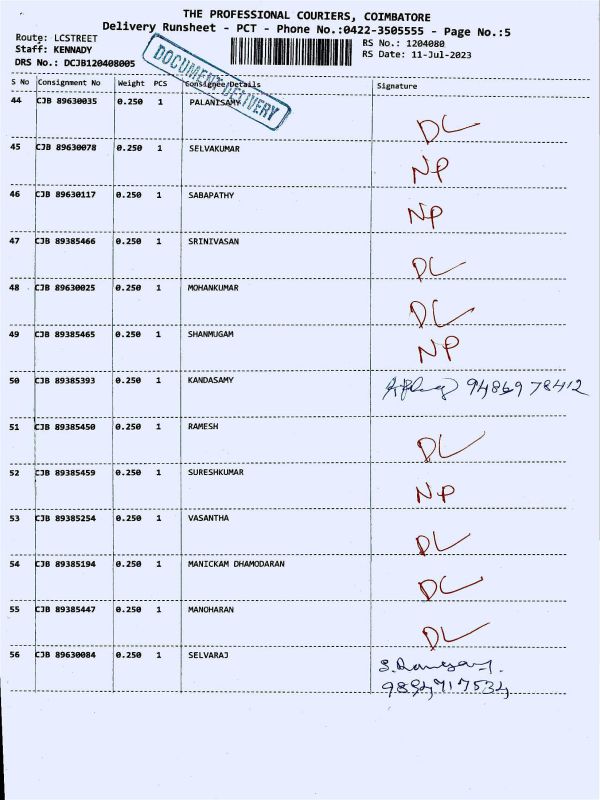 THE PROFESSIONAL COURIERS, COIMBATORE
Delivery Runsheet - PCT - Phone No.:0422-3505555 - Page No.:5
Route: LCSTREET
RS No.: 1204080
Staff: KENNADY
RS Date: 11-Jul-2023
DRS No.: DCJB120408005
DOCUMENT DELIVERY
S No Consignment No Weight PCS Consignee/Details Signature
44 CJB 89630035 0.250 1 PALANISAMY DL
45 CJB 89630078 0.250 1 SELVAKUMAR NP
46 CJB 89630117 0.250 1 SABAPATHY NP
47 CJB 89385466 0.250 1 SRINIVASAN DL
48 CJB 89630025 0.250 1 MOHANKUMAR DL
49 CJB 89385465 0.250 1 SHANMUGAM NP
50 CJB 89385393 0.250 1 KANDASAMY 9486978412
51 CJB 89385450 0.250 1 RAMESH DL
52 CJB 89385459 0.250 1 SURESHKUMAR NP
53 CJB 89385254 0.250 1 VASANTHA DL
54 CJB 89385194 0.250 1 MANICKAM DHAMODARAN DL
55 CJB 89385447 0.250 1 MANOHARAN DL
56 CJB 89630084 0.250 1 SELVARAJ S.
9894717534